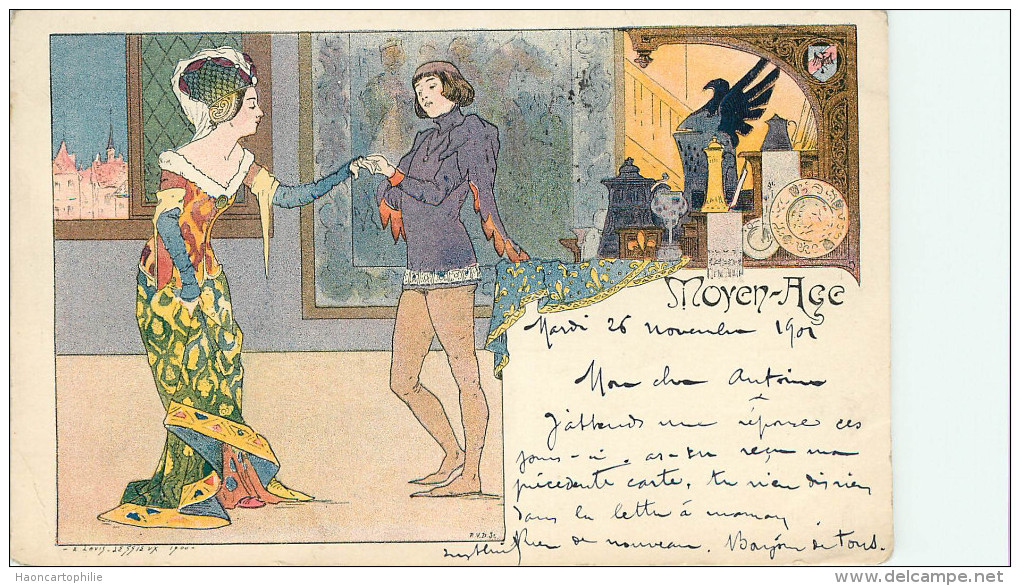 Moyen-Age
Mardi 26 novembre 1901
Mon cher Antoine
J'attends une réponse ces
jours-ci. as-tu reçu ma
précédente carte, tu n'en dis rien
dans la lettre à maman
Rien de nouveau. de tous.
- E. LOUIS-LESSIEUX 1900 -
P.V.D. Sc.
Haoncartophilie
www.delcampe.net